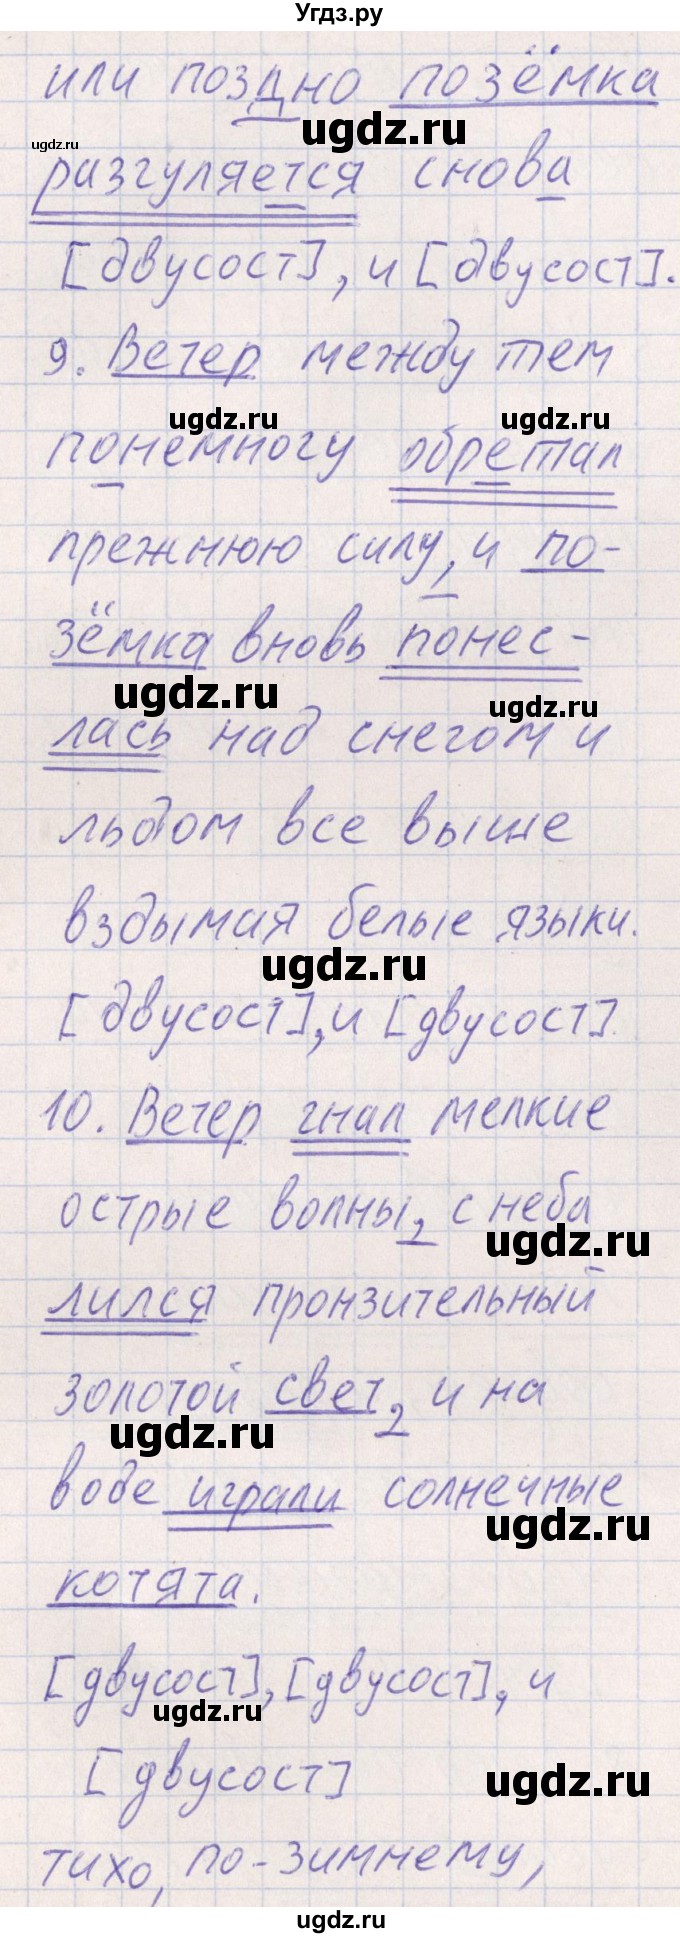 Угдз.ру
или поздно позёмка
ugdz.ru
ugdz.ru
разгуляется снова
[двусост], и [двусост].
9. Ветер между тем
ugdz.ru
ugdz.ru
понемногу обретал
прежнюю силу, и по-
зёмка вновь понес-
ugdz.ru
ugdz.ru
лась над снегом и
льдом все выше
вздымая белые языки.
ugdz.ru
[двусост], и [двусост].
10. Ветер гнал мелкие
острые волны, с неба
ugdz.ru
лился пронзительный
золотой свет, и на
ugdz.ru
воде играли солнечные
ugdz.ru
котята.
[двусост], [двусост], и
ugdz.ru
[двусост]
ugdz.ru
тихо, по-зимнему,
ugdz.ru